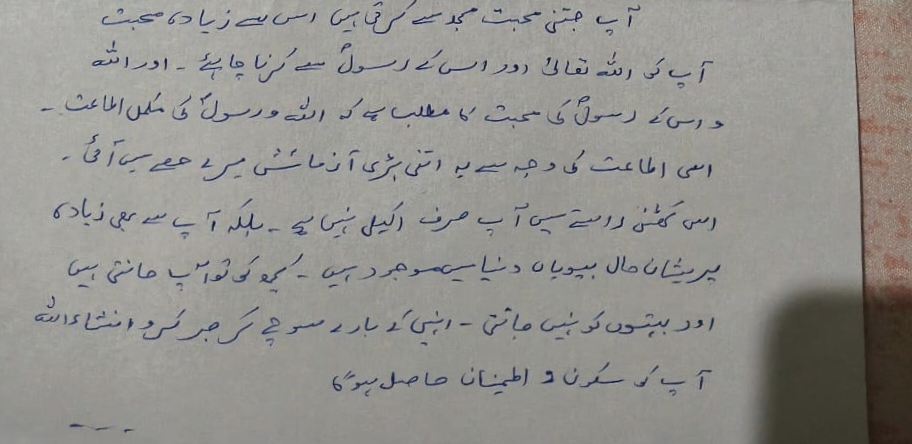 آپ جتنی محبت مجھ سے کرتی ہیں اس سے زیادہ محبت
آپ کی اللہ تعالیٰ اور اس کے رسولؐ سے کرنا چاہئے ۔ اور اللہ
و اس کے رسولؐ کی محبت کا مطلب ہے کہ اللہ و رسولؐ کی مکمل اطاعت ۔
اسی اطاعت کی وجہ سے یہ اتنی بڑی آزمائش میرے حصے میں آئی ۔
اس کٹھن راستے میں آپ صرف اکیلی نہیں ہے ۔ بلکہ آپ سے بھی زیادہ
پریشان حال بیویاں دنیا میں موجود ہیں ۔ کچھ کو تو آپ جانتی ہیں
اور بہتوں کو نہیں جانتی ۔ انہی کے بارے سوچ کر صبر کرو انشاءاللہ
آپ کو سکون و اطمینان حاصل ہوگا